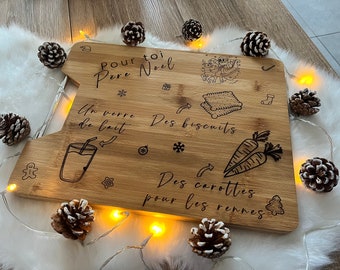 Pour toi
Père Noël
Un verre
de lait
Des biscuits
Des carottes
pour les rennes